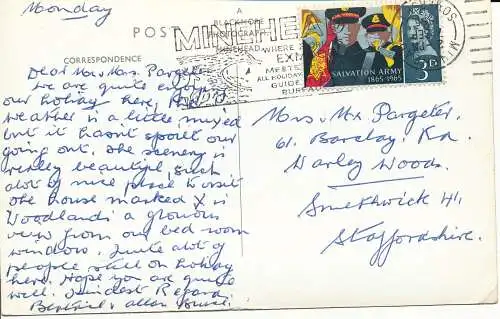 Monday
POST
A
BLACKMORE
PHOTOGRAPH
MINEHEAD
CORRESPONDENCE
MINEHEAD
WHERE
EXM
MEETS
ALL HOLIDAY
GUIDE
BUREAU
SALVATION ARMY
1865-1965
3D
Dear Mr & Mrs Pargeter
We are quite enjoy
our holiday here, the
weather is a little mixed
but it hasn't spoilt our
going out. The scenery is
really beautiful, such
alot of nice place to visit
the house marked X is
Woodlands a glorious
view from our bed room
window. Quite alot of
people still on holiday
here. Hope you are quite
well. Kindest Regards
Bertha & allan
Mrs & Mr Pargeter
61. Barclay. Rd
Warley Woods.
Smethwick 41.
Staffordshire.